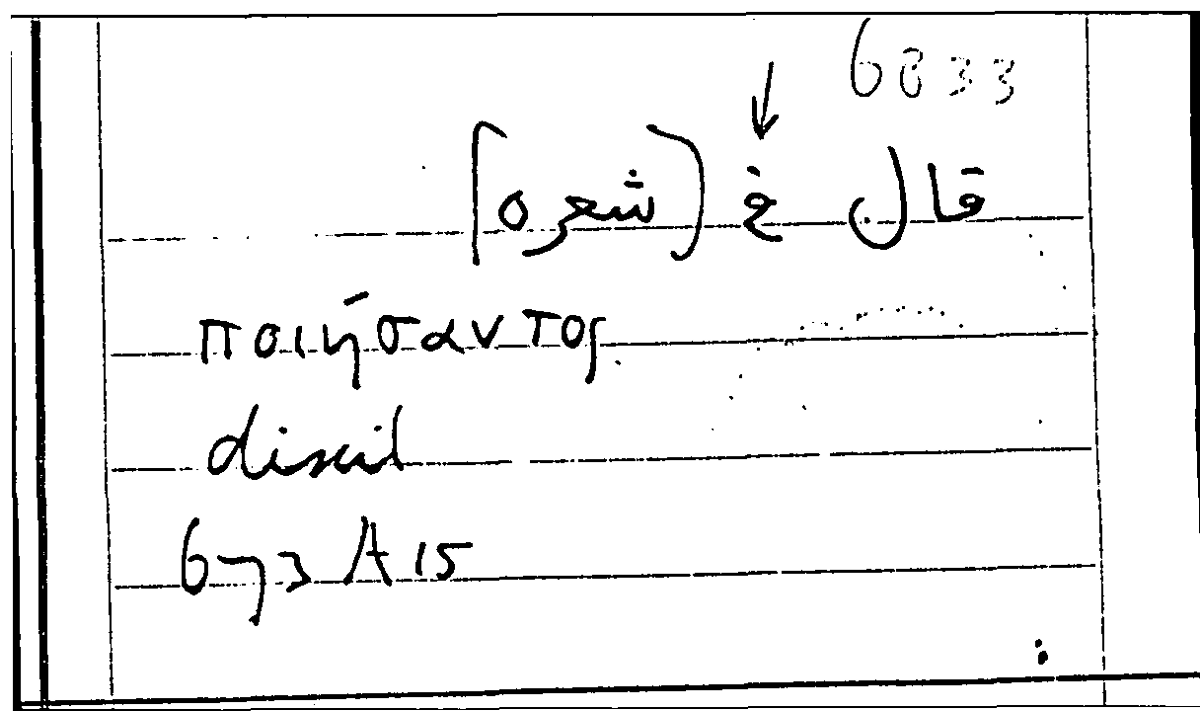 6833
قال في (شعره]
ποιήσαντος
dixit
673 A 15